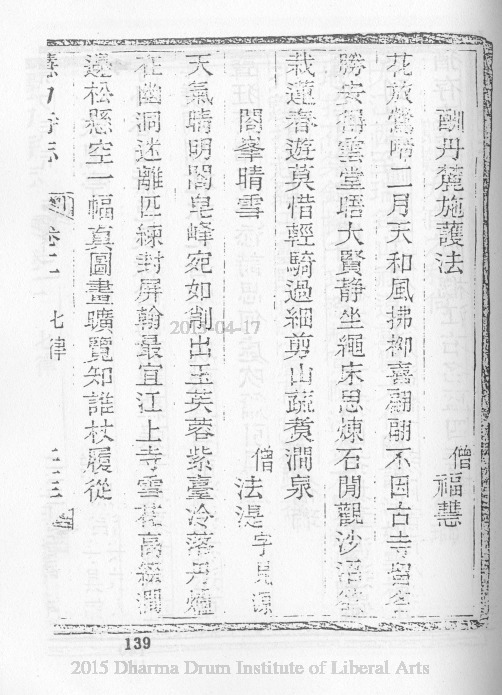 酬丹麓施護法
僧福慧
花放鶯啼二月天和風拂柳喜翩翩不因古寺留名
勝安得雲堂晤大賢静坐繩床思煉石閒觀沙沼欲
栽蓮春遊莫惜輕騎過細剪山蔬煑澗泉
閤峯晴雪
僧法湜字見源
天氣晴明閤皂峰宛如削出玉芙蓉紫臺冷落丹爐
在幽洞迷離匹練封屏翰最宜江上寺雪花高綴澗
邊松懸空一幅真圖畫曠覽知誰杖履從
慧力寺志
卷二
七律
二三
139
2009-04-17
2015 Dharma Drum Institute of Liberal Arts